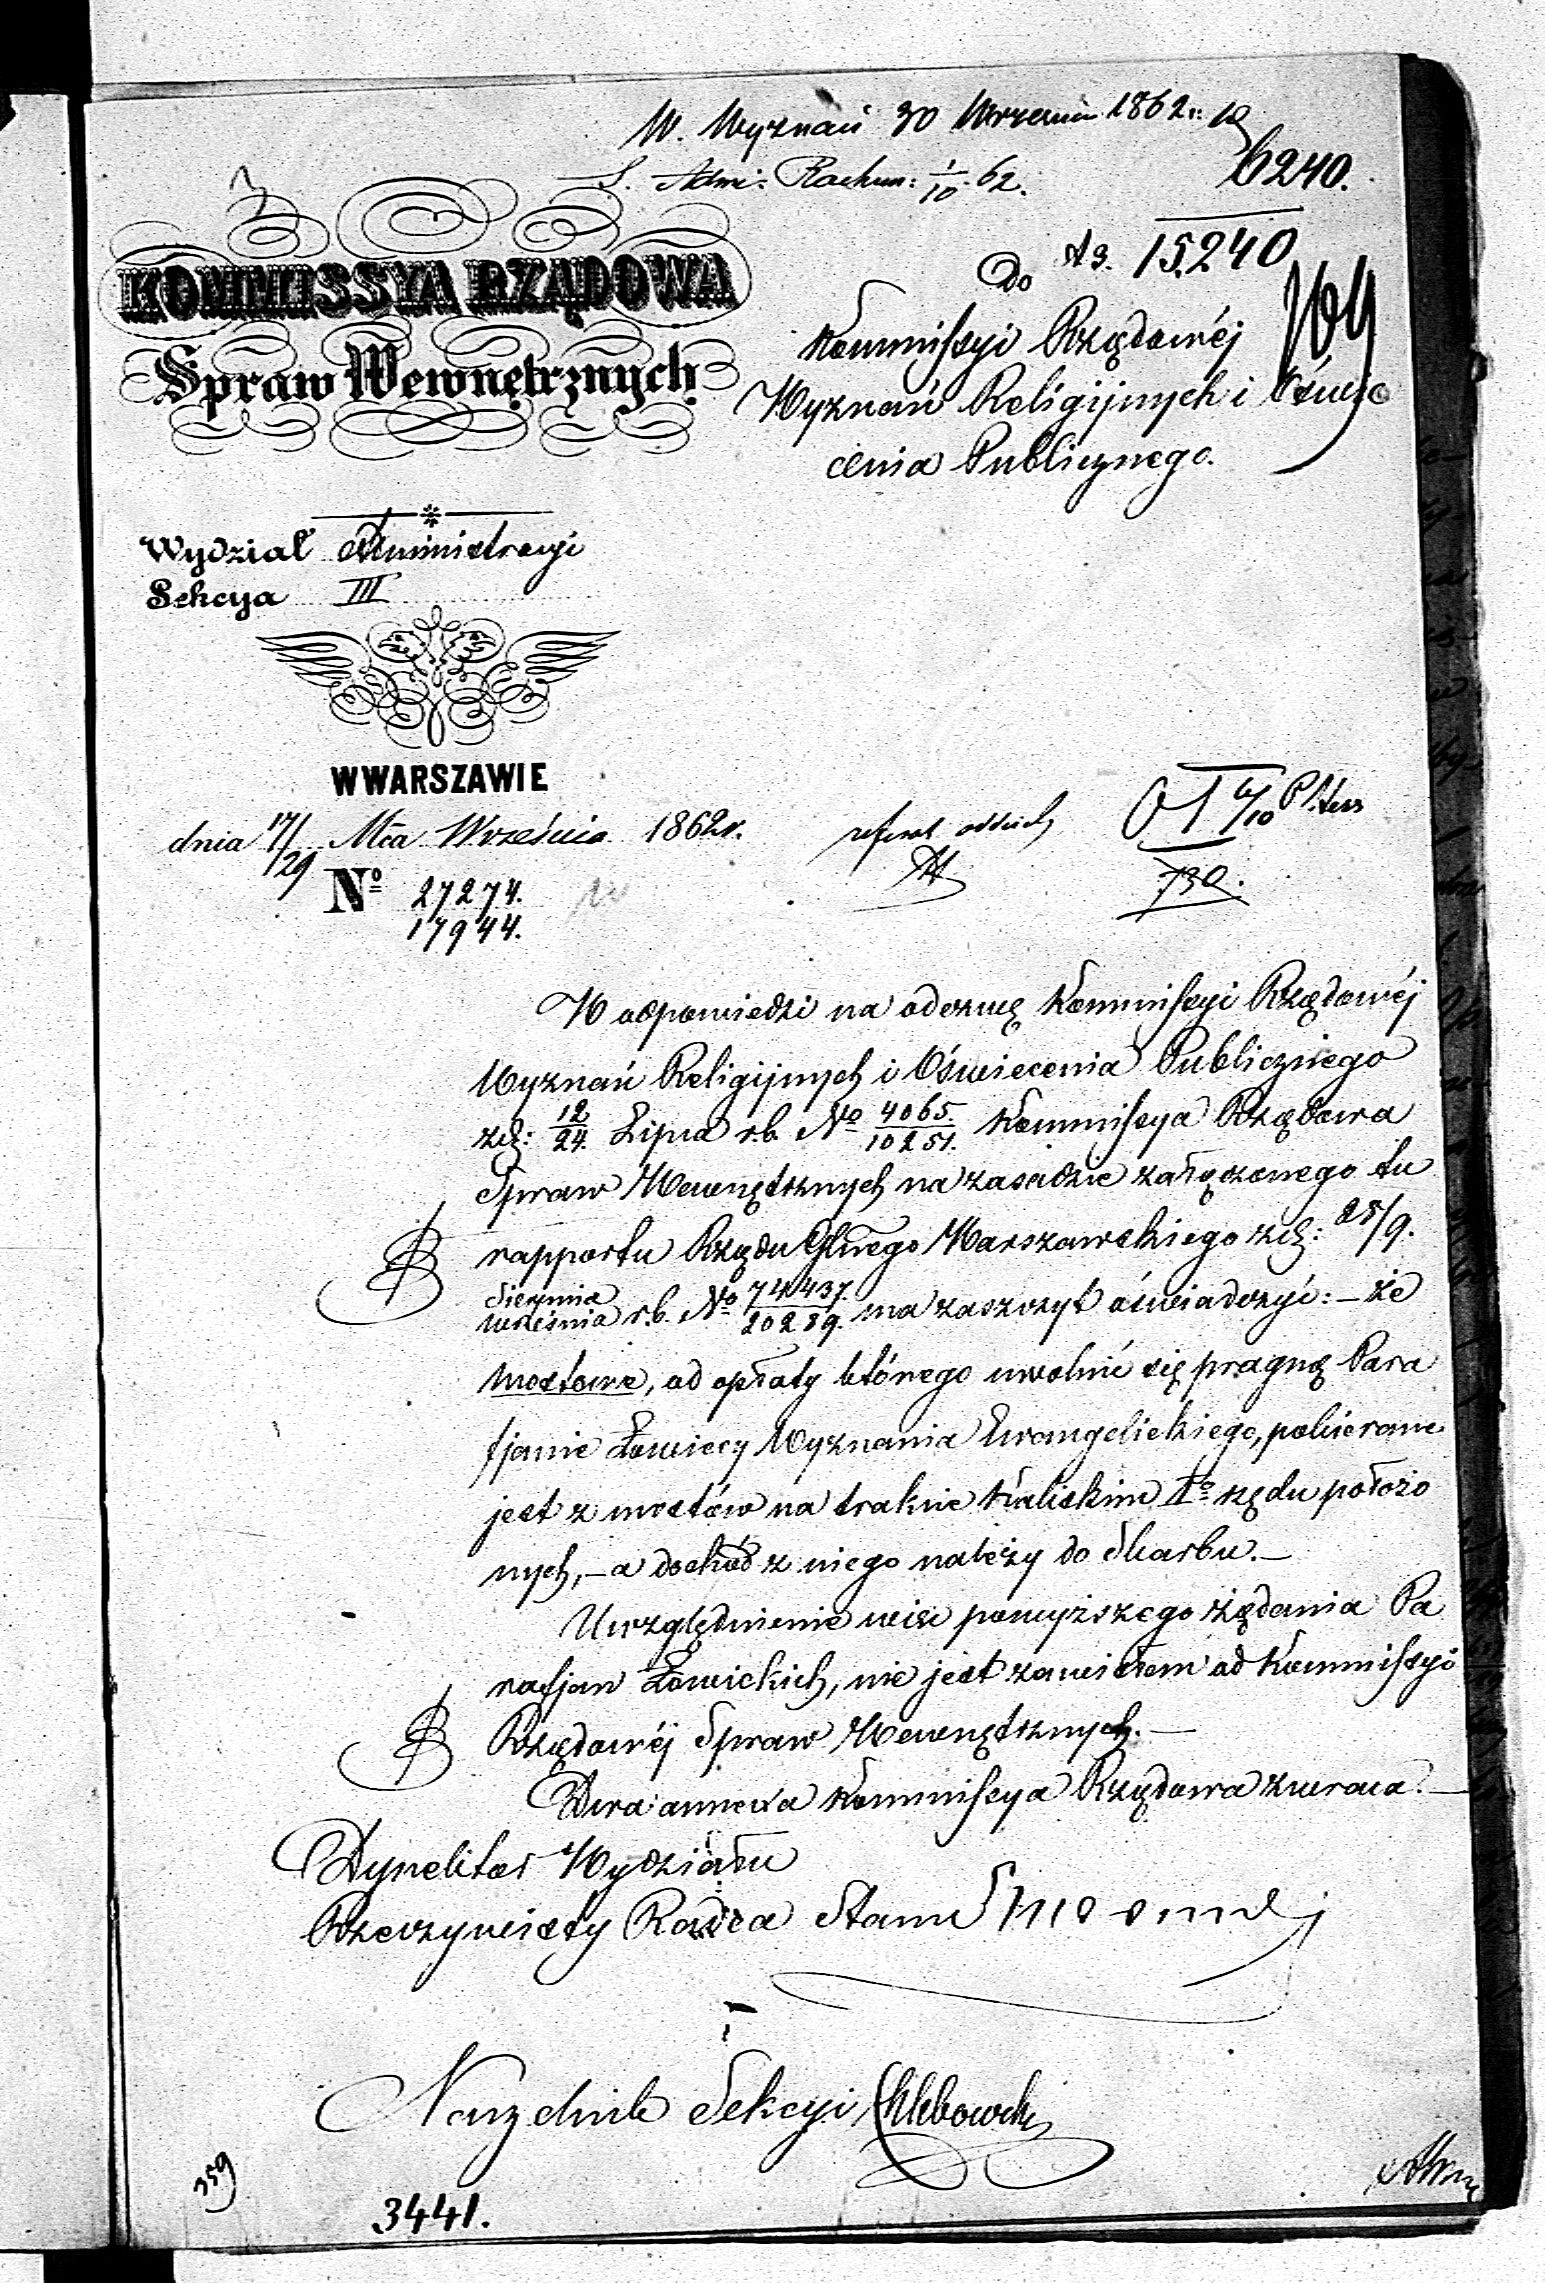 W. Wyznań 30 Września 1862 r.
S. Adm: Rachun: 1/10 62.
6240.
15240
KOMMISSYA RZĄDOWA
Spraw Wewnętrznych
Do
Kommissyi Rządowéj
Wyznań Religijnych i Oświe
cenia Publicznego.
Wydział Administracyi
Sekcya III
W WARSZAWIE
dnia 17/29 Mca Września 1862 r.
No 27274.
17944.
730.
W odpowiedzi na odezwę Kommissyi Rządowéj
Wyznań Religijnych i Oświecenia Publicznego
zd: 12/24 Lipca r.b. No 4065/10251. Kommissya Rządowa
Spraw Wewnętrznych na zasadzie załączonego tu
rapportu Rządu Glnego Warszawskiego zd: 28/9.
Sierpnia/Września r.b. No 74437./20289. ma zaszczyt oświadczyć: – że
mostowe, od opłaty którego uwolnić się pragną Para
fjanie Łowiccy Wyznania Ewangelickiego, pobierane
jest z mostów na trakcie Kaliskim Igo rzędu położo
nych, – a dochód z niego należy do Skarbu. –
Uwzględnienie więc powyższego żądania Pa
rafjan Łowickich, nie jest zawisłem od Kommissyi
Rządowéj Spraw Wewnętrznych. –
Dwa annexa Kommissya Rządowa zwraca. –
Dyrektor Wydziału
Rzeczywisty Radca Stanu
Naczelnik Sekcyi Chlebowski
359
3441.